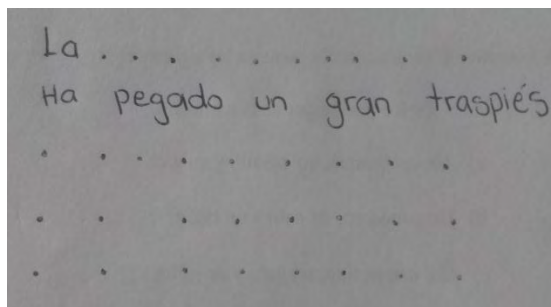 La . . . . . . . . . . .
Ha pegado un gran traspiés
. . . . . . . . .
. . . . . . . . .
. . . . . . . .